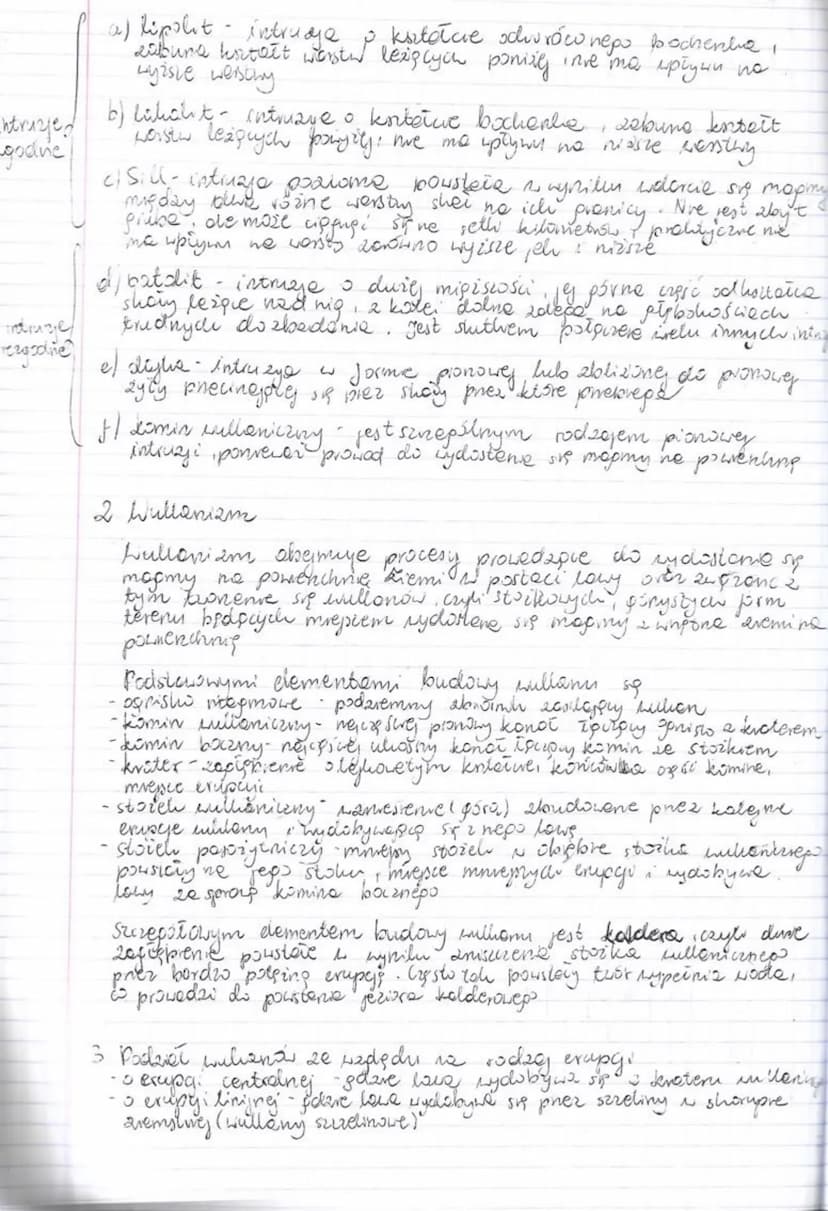 a) lipolit - intruzja o kształcie odwróconego bochenka,
zaburza kształt warstw leżących poniżej, nie ma wpływu na
wyższe warstwy
intruzje
zgodne
b) lakolit - intruzja o kształcie bochenka, zaburza kształt
warstw leżących powyżej; nie ma wpływu na niższe warstwy
c) Sill - intruzja pozioma powstała w wyniku wdarcia się magmy
między dwie różne warstwy skał na ich granicy. Nie jest zbyt
gruba, ale może ciągnąć się na setki kilometrów, praktycznie nie
ma wpływu na warstwy zarówno wyższe jak i niższe
d) batolit - intruzja o dużej miąższości, jej górna część odkształca
skały leżące nad nią, z kolei dolna zalega na głębokościach
trudnych do zbadania. Jest skutkiem połączenia wielu innych
intruzje
niezgodne
e) dajka - intruzja w formie pionowej lub zbliżonej do pionowej
żyły przecinającej się przez skały przez które przebiega
f) komin wulkaniczny - jest szczególnym rodzajem pionowej
intruzji, ponieważ prowadzi do wydostania się magmy na powierzchnię
2 Wulkanizm
Wulkanizm obejmuje procesy prowadzące do wydostania się
magmy na powierzchnię Ziemi w postaci lawy oraz związane z
tym tworzenie się wulkanów, czyli stożkowych, górzystych form
terenu będących miejscem wydostania się magmy z wnętrza ziemi na
powierzchnię
Podstawowymi elementami budowy wulkanu są
- ognisko magmowe - podziemny zbiornik zasilający wulkan
- komin wulkaniczny - najczęściej pionowy kanał łączący ognisko z kraterem
- komin boczny - najczęściej ukośny kanał łączący komin ze stożkiem
- krater - zagłębienie o lejkowatym kształcie, końcówka część komina,
miejsce erupcji
- stożek wulkaniczny - wzniesienie (góra) zbudowane przez kolejne
erupcje wulkanu i wydobywającą się z niego lawę
- stożek pasożytniczy - mniejszy stożek w obrębie stożka wulkanicznego
powstały na jego stoku, miejsce mniejszych erupcji i wydobywa
lawy za sprawą komina bocznego
Szczegółowym elementem budowy wulkanu jest kaldera, czyli duże
zagłębienie powstałe w wyniku zniszczenia stożka wulkanicznego
przez bardzo potężną erupcję. Często tak powstały twór wypełnia woda,
co prowadzi do powstania jeziora kalderowego
3 Podział wulkanów ze względu na rodzaj erupcji
- o erupcji centralnej - gdzie lawa wydobywa się z krateru wulkanu
- o erupcji linijnej - gdzie lawa wydobywa się przez szczeliny w skorupie
ziemskiej (wulkany szczelinowe)